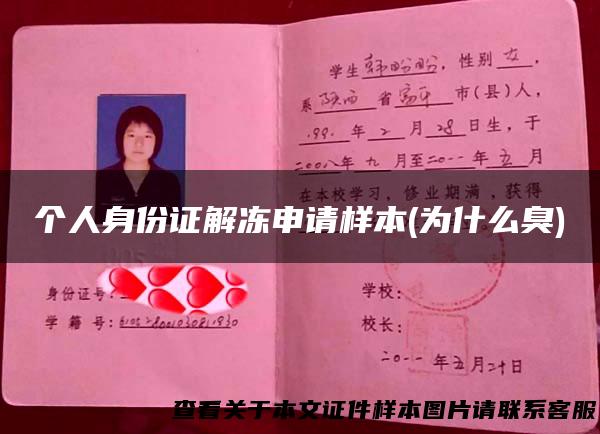 学生韩盼盼，性别女，
系陕西省富平市(县)人，
199 年2月28日生，于
二000八年九月至二0一一年五月
在本校学习，修业期满，获得
个人身份证解冻申请样本(为什么臭)
身份证号:
学籍号:
学校:
校长:
二0一一年五月二十日
查看关于本文证件样本图片请联系客服